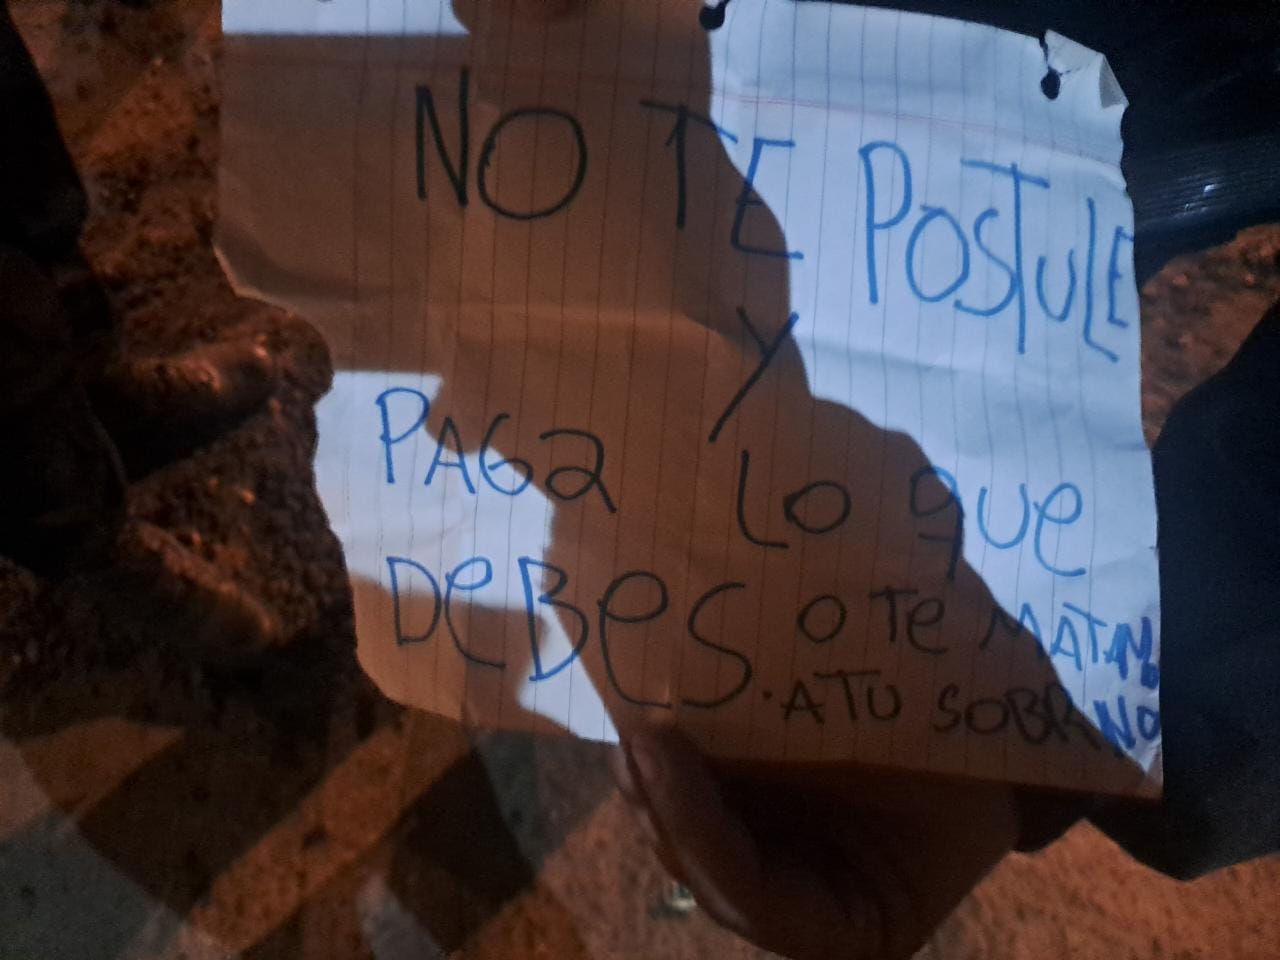 NO TE POSTULE
Y
PAGa Lo que
DeBeS. o Te MATAMO
ATU SOBRNO